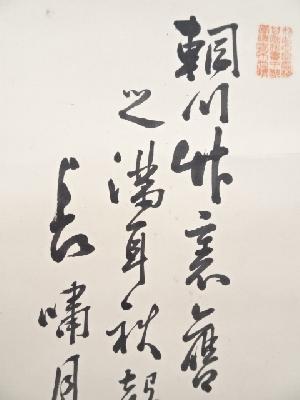 輞川竹裏舊
之滿耳秋
長嘯月